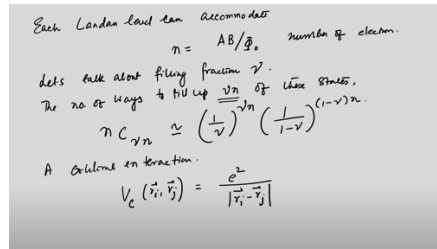 Each Landau level can accommodate
n = AB/Φ₀ number of electron.
Lets talk about filling fraction ν.
The no of ways to fill up νn of these states,
n C_νn ≃ (1/ν)^νn (1/(1-ν))^(1-ν)n.
A Coulomb interaction.
V_c (r⃗_i, r⃗_j) = e²/|r⃗_i - r⃗_j|